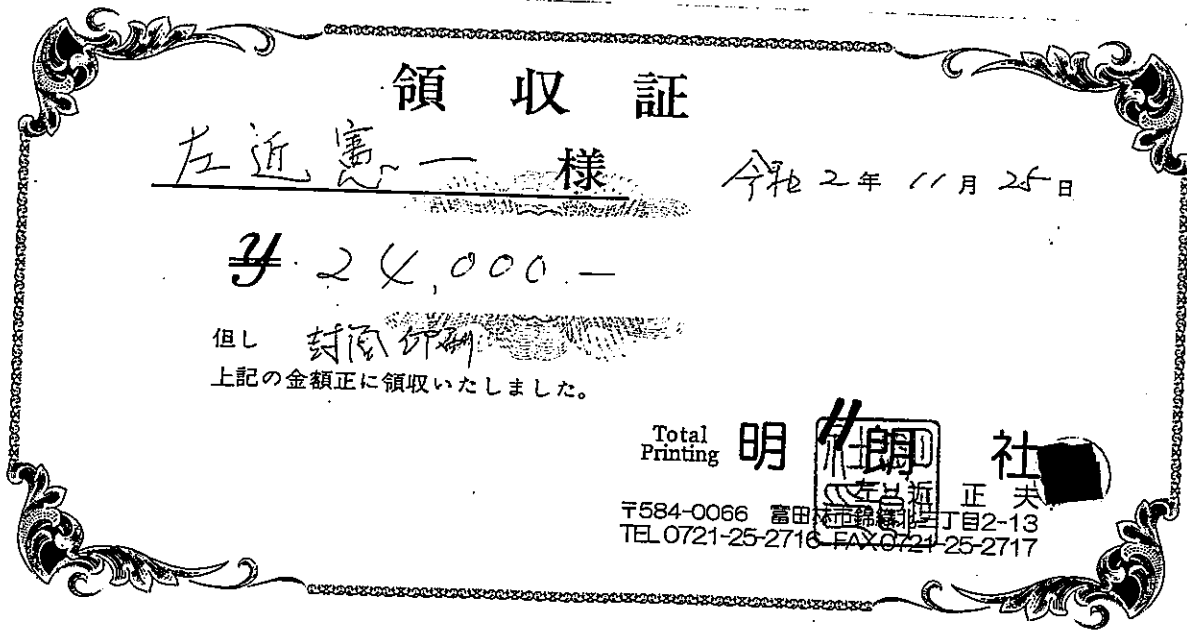 領収証
左近憲一 様
令和2年11月25日
¥24,000.—
但し 封筒印刷
上記の金額正に領収いたしました。
Total Printing 明朗社
左近正夫
〒584-0066 富田林市錦織北三丁目2-13
TEL 0721-25-2716 FAX 0721-25-2717